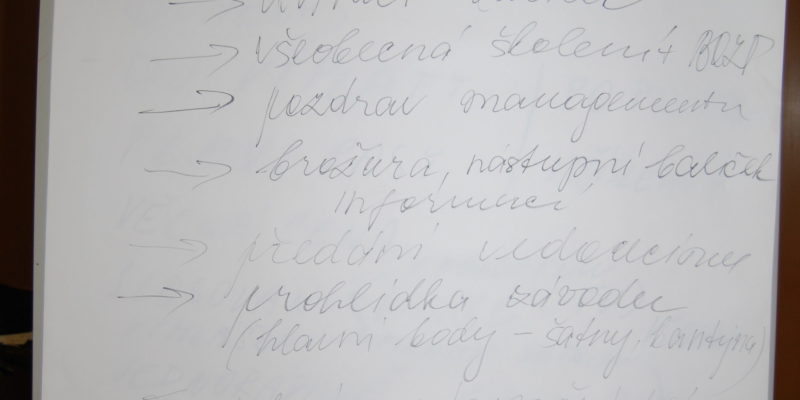 → všeobecná školení + BOZP
→ pozdrav managementu
→ brožura, nástupní balíček
informací
→ předání vedoucímu
→ prohlídka závodu
(hlavní body - šatny, kantýna)